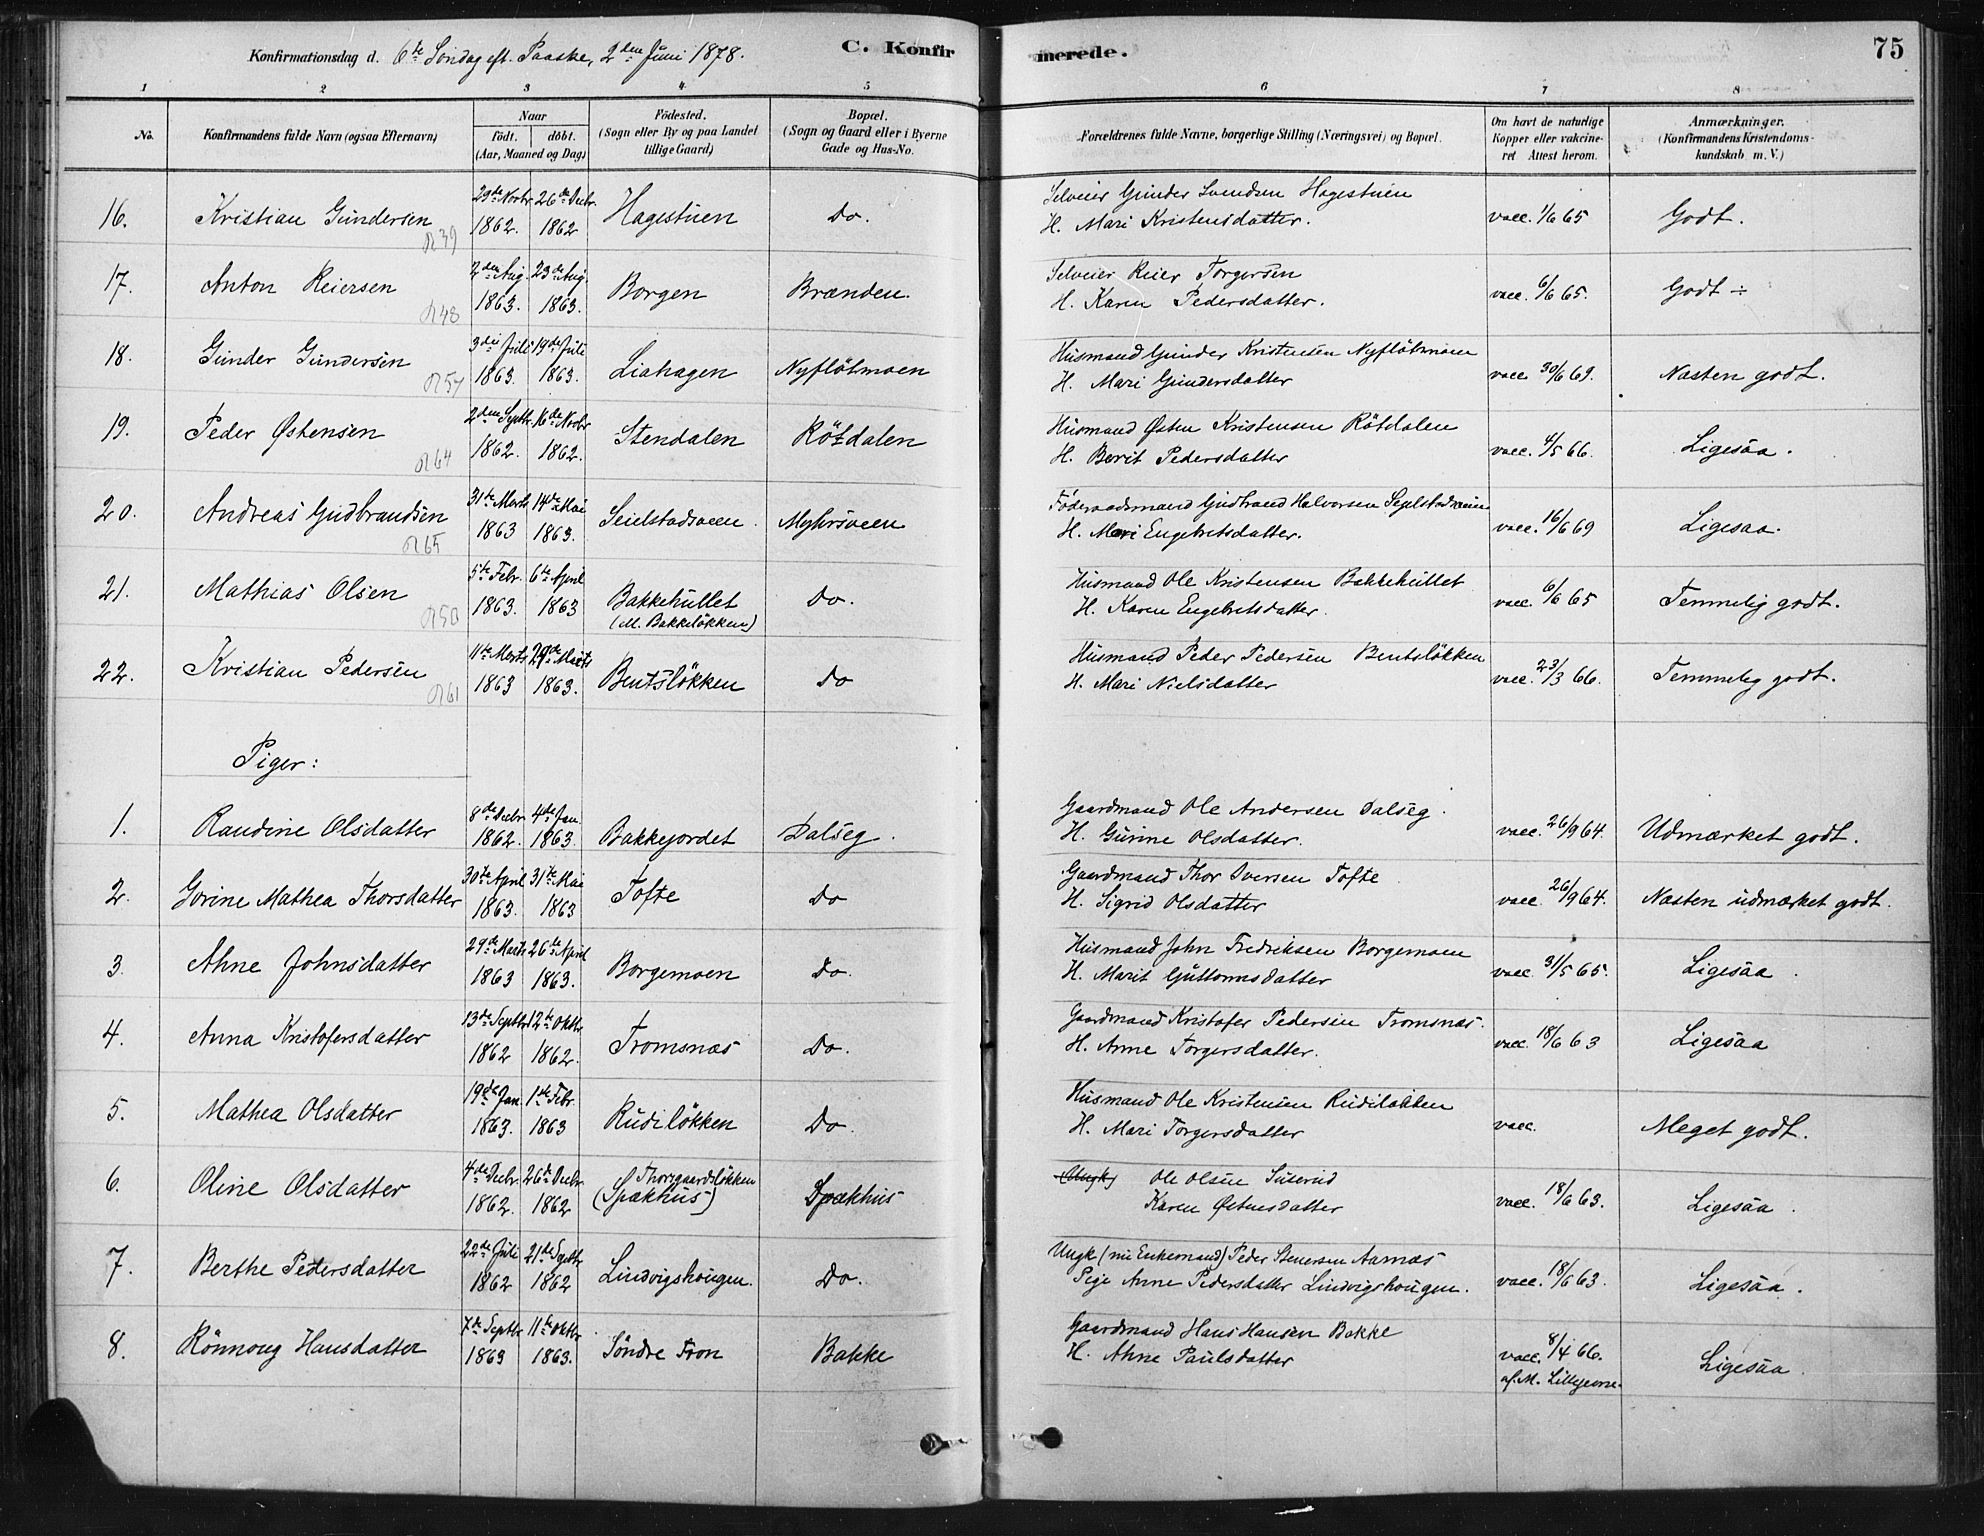 Konfirmationsdag d. 6te Søndag eft. Paaske, 2den Juni 1878.
C. Konfir
merede.
75
1 2 3 4 5 6 7 8
No.
Konfirmandens fulde Navn (ogsaa Efternavn)
Naar
födt. döbt.
(Aar, Maaned og Dag)
Födested.
(Sogn eller By og paa Landet
tillige Gaard)
Bopæl.
(Sogn og Gaard eller i Byerne
Gade og Hus-No.
Forældrenes fulde Navne, borgerlige Stilling (Næringsvei) og Bopæl.
Om havt de naturlige
Kopper eller vakcine-
ret Attest herom.
Anmærkninger.
(Konfirmandens Kristendoms-
kundskab m. V.)
29de Novbr. 26de Decbr. Selveier Gunder Svendsen Hagestuen
16. Kristian Gundersen 1862. 1862 Hagestuen Do. H. Mari Kristensdatter. vacc. 1/6 65 Godt.
39
2den Aug. 23de Aug. Selveier Reier Torgersen
17. Anton Reiersen 1863. 1863. Borgen Brænden. H. Karen Pedersdatter. vacc. 6/6 65. Godt ÷
48
3die Juli 19de Juli Husmand Gunder Kristensen Nyflötmoen
18. Gunder Gundersen 1863. 1863. Liahagen Nyflötmoen H. Mari Gundersdatter vacc. 30/6 69. Næsten godt.
57
2den Septbr. 16de Novbr. Husmand Østen Kristensen Rötdalen
19. Peder Østensen 1862. 1862. Stendalen Rötdalen H. Berit Pedersdatter vacc. 4/5 66. Ligesaa.
64
31te Marts 14de Mai Föderaadsmand Gudbrand Halvorsen Seielstadveien
20. Andreas Gudbrandsen 1863 1863. Seielstadveen Myhrsveen H. Mari Engebretsdatter. vacc. 16/6 69 Ligesaa.
65
5te Febr. 6te April Husmand Ole Kristensen Bakkehullet
21. Mathias Olsen 1863. 1863 Bakkehullet Do. H. Karen Engebretsdatter. vacc. 6/6 65 Temmelig godt.
50 (M. Bakkelökken)
11te Marts 29de Marts Husmand Peder Pedersen Bentslökken
22. Kristian Pedersen 1863 1863. Bentslökken Do H. Mari Nielsdatter vacc. 23/3 66. Temmelig godt.
61
Piger:
8de Decbr. 4de Jan Gaardmand Ole Andersen Dalseg.
1. Randine Olsdatter 1862. 1863. Bakkejordet Dalseg. H. Gurine Olsdatter. vacc. 26/9 64. Udmærket godt.
30te April 31te Mai Gaardmand Thor Iversen Tofte
2. Gorine Mathea Thorsdatter 1863. 1863 Tofte Do H. Sigrid Olsdatter vacc. 26/9 64. Næsten udmærket godt.
29de Marts 26de April Husmand John Fredriksen Borgemoen
3. Ahne Johnsdatter 1863 1863. Borgemoen Do. H. Marit Guttormsdatter vacc. 31/5 65. Ligesaa.
13de Septbr. 12te Oktbr. Gaardmand Kristofer Pedersen Tromsnæs.
4. Anna Kristofersdatter 1862 1862. Tromsnæs Do. H. Anne Torgersdatter. vacc. 18/6 63 Ligesaa
19de Jan. 1ste Febr. Husmand Ole Kristensen Rudilökken
5. Mathea Olsdatter 1863. 1863 Rudilökken Do. H. Mari Torgersdatter vacc. Meget godt.
4de Decbr. 26de Decbr. Thorsgaardslökken (Ungk) Ole Olsen Suserud
6. Oline Olsdatter 1862. 1862 (Spækhus) Spækhus Karen Østensdatter vacc. 18/6 63. Ligesaa.
22de Juli 21de Septbr. Ungk (nu Enkemand) Peder Stenersen Aarnæs
7. Berthe Pedersdatter 1862 1862 Lindvigshougen. Do. Pige Anne Pedersdatter Lindvigshougen. vacc. 18/6 63. Ligesaa.
7de Septbr. 11te Oktbr. Gaardmand Hans Hansen Bakke
8. Rönnoug Hansdatter 1863 1863. Söndre Fron Bakke H. Ahne Paulsdatter vacc. 8/4 66. Ligesaa.
af M. Lillegevne.